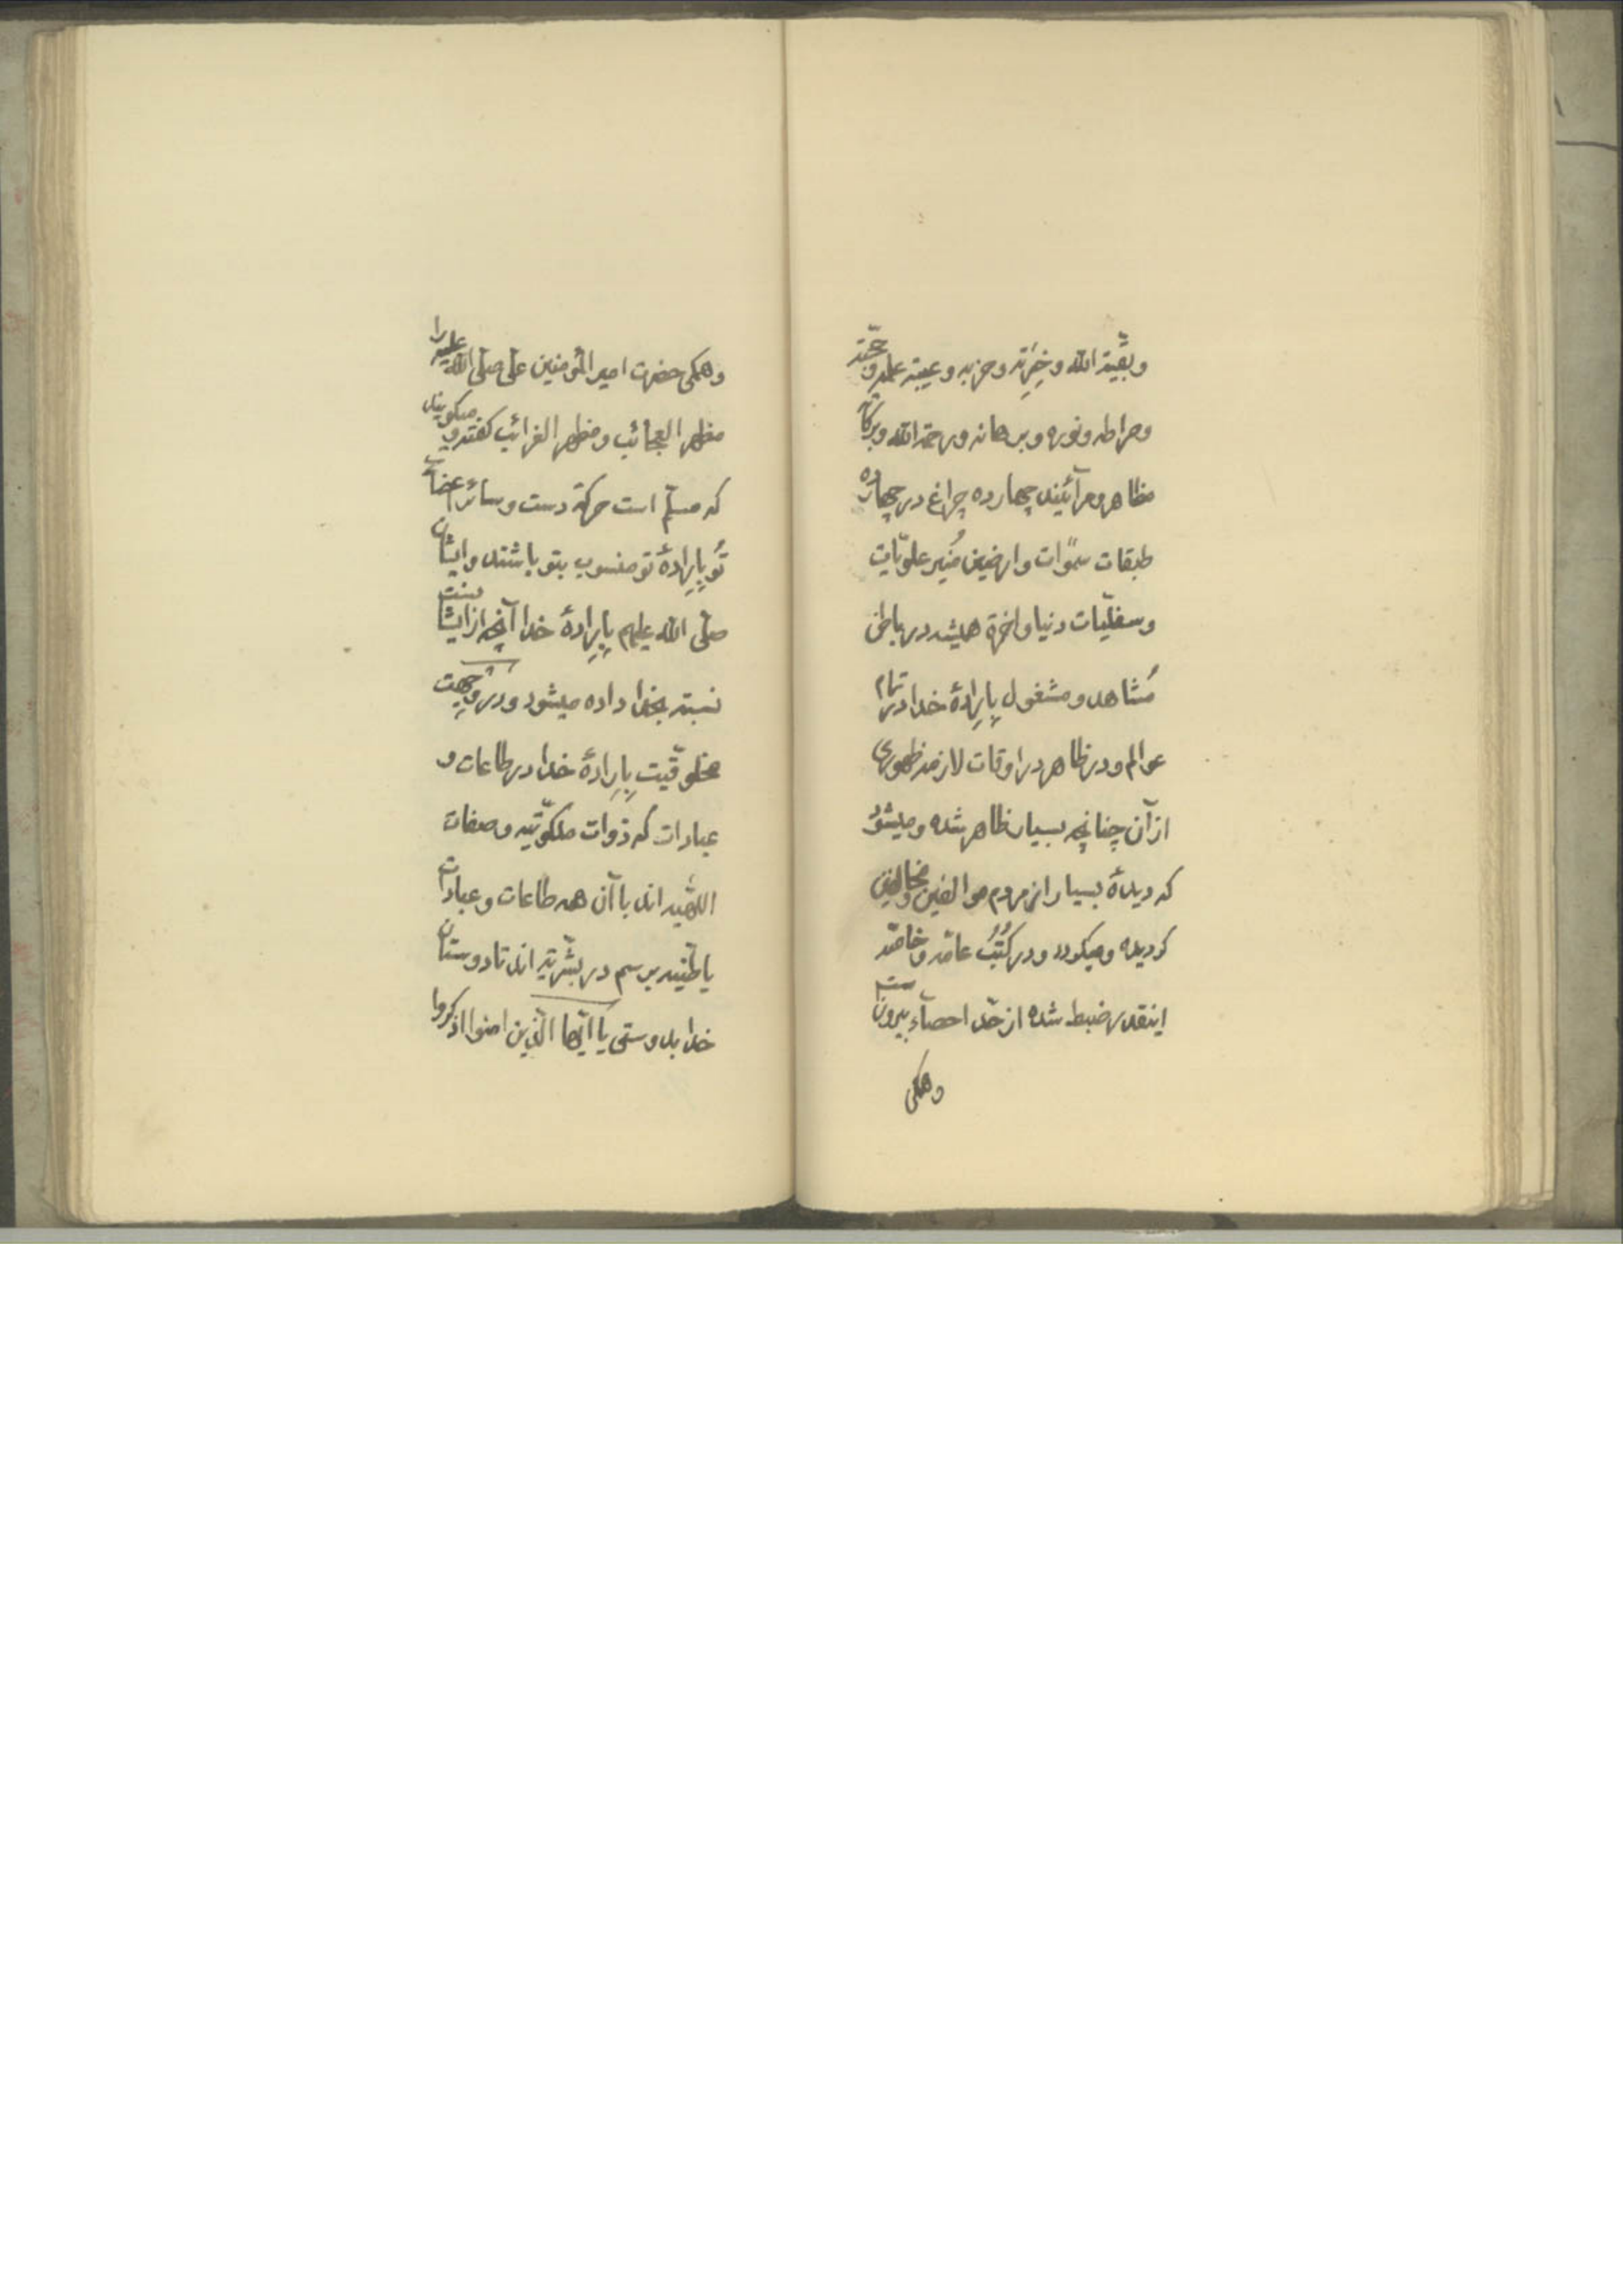 وبقیّة اللّه وخِیَرته وحزبه وعیبة علمه وحجّته
وصراطه ونوره وبرهانه ورحمة اللّه وبرکاته
مظاهر ومرآئیند چهارده چراغ در چهارده
طبقات سمٰوات وارضین مُنیر علویّات
وسفلیّات دنیا واخرة همیشه در باطن
مُشاهد ومشغول بِاِرادهٔ خدا در تمام
عوالم ودر ظاهر در اوقات لازمه ظهوری
از آن چنانچه بسیار ظاهر شده ومیشود
که دیدهٔ بسیار از مردم موالفین ومخالفین
کردیده ومیکردد ودر کُتُب عامّه وخاصّه
اینقدر ضبط شده از حدّ احصآء بیرونست
وهمکی
وهمکی حضرت امیر المؤمنین علی صلّی اللّه علیه را
مظهر العجائب ومظهر الغرائب کفته ومیکویند
که مسلّم است حرکة دست وسائر اعضای
تُو بِاِرادهٔ تو منسوب بتو باشند وایشان
صلّی اللّه علیهم بِاِرادهٔ خدا آنچه از ایشانست
نسبة بخدا داده میشود ودر وجهت
مخلوقیّت بِاِرادهٔ خدا در طاعات و
عبادات که ذوات ملکوتیّه وصفات
اللّهیّه اند با آن همه طاعات وعبادات
باطنیّه برسم در بشریّة اند تا دوستان
خدا بدوستی یا ایّها الّذین امنوا اذکروا